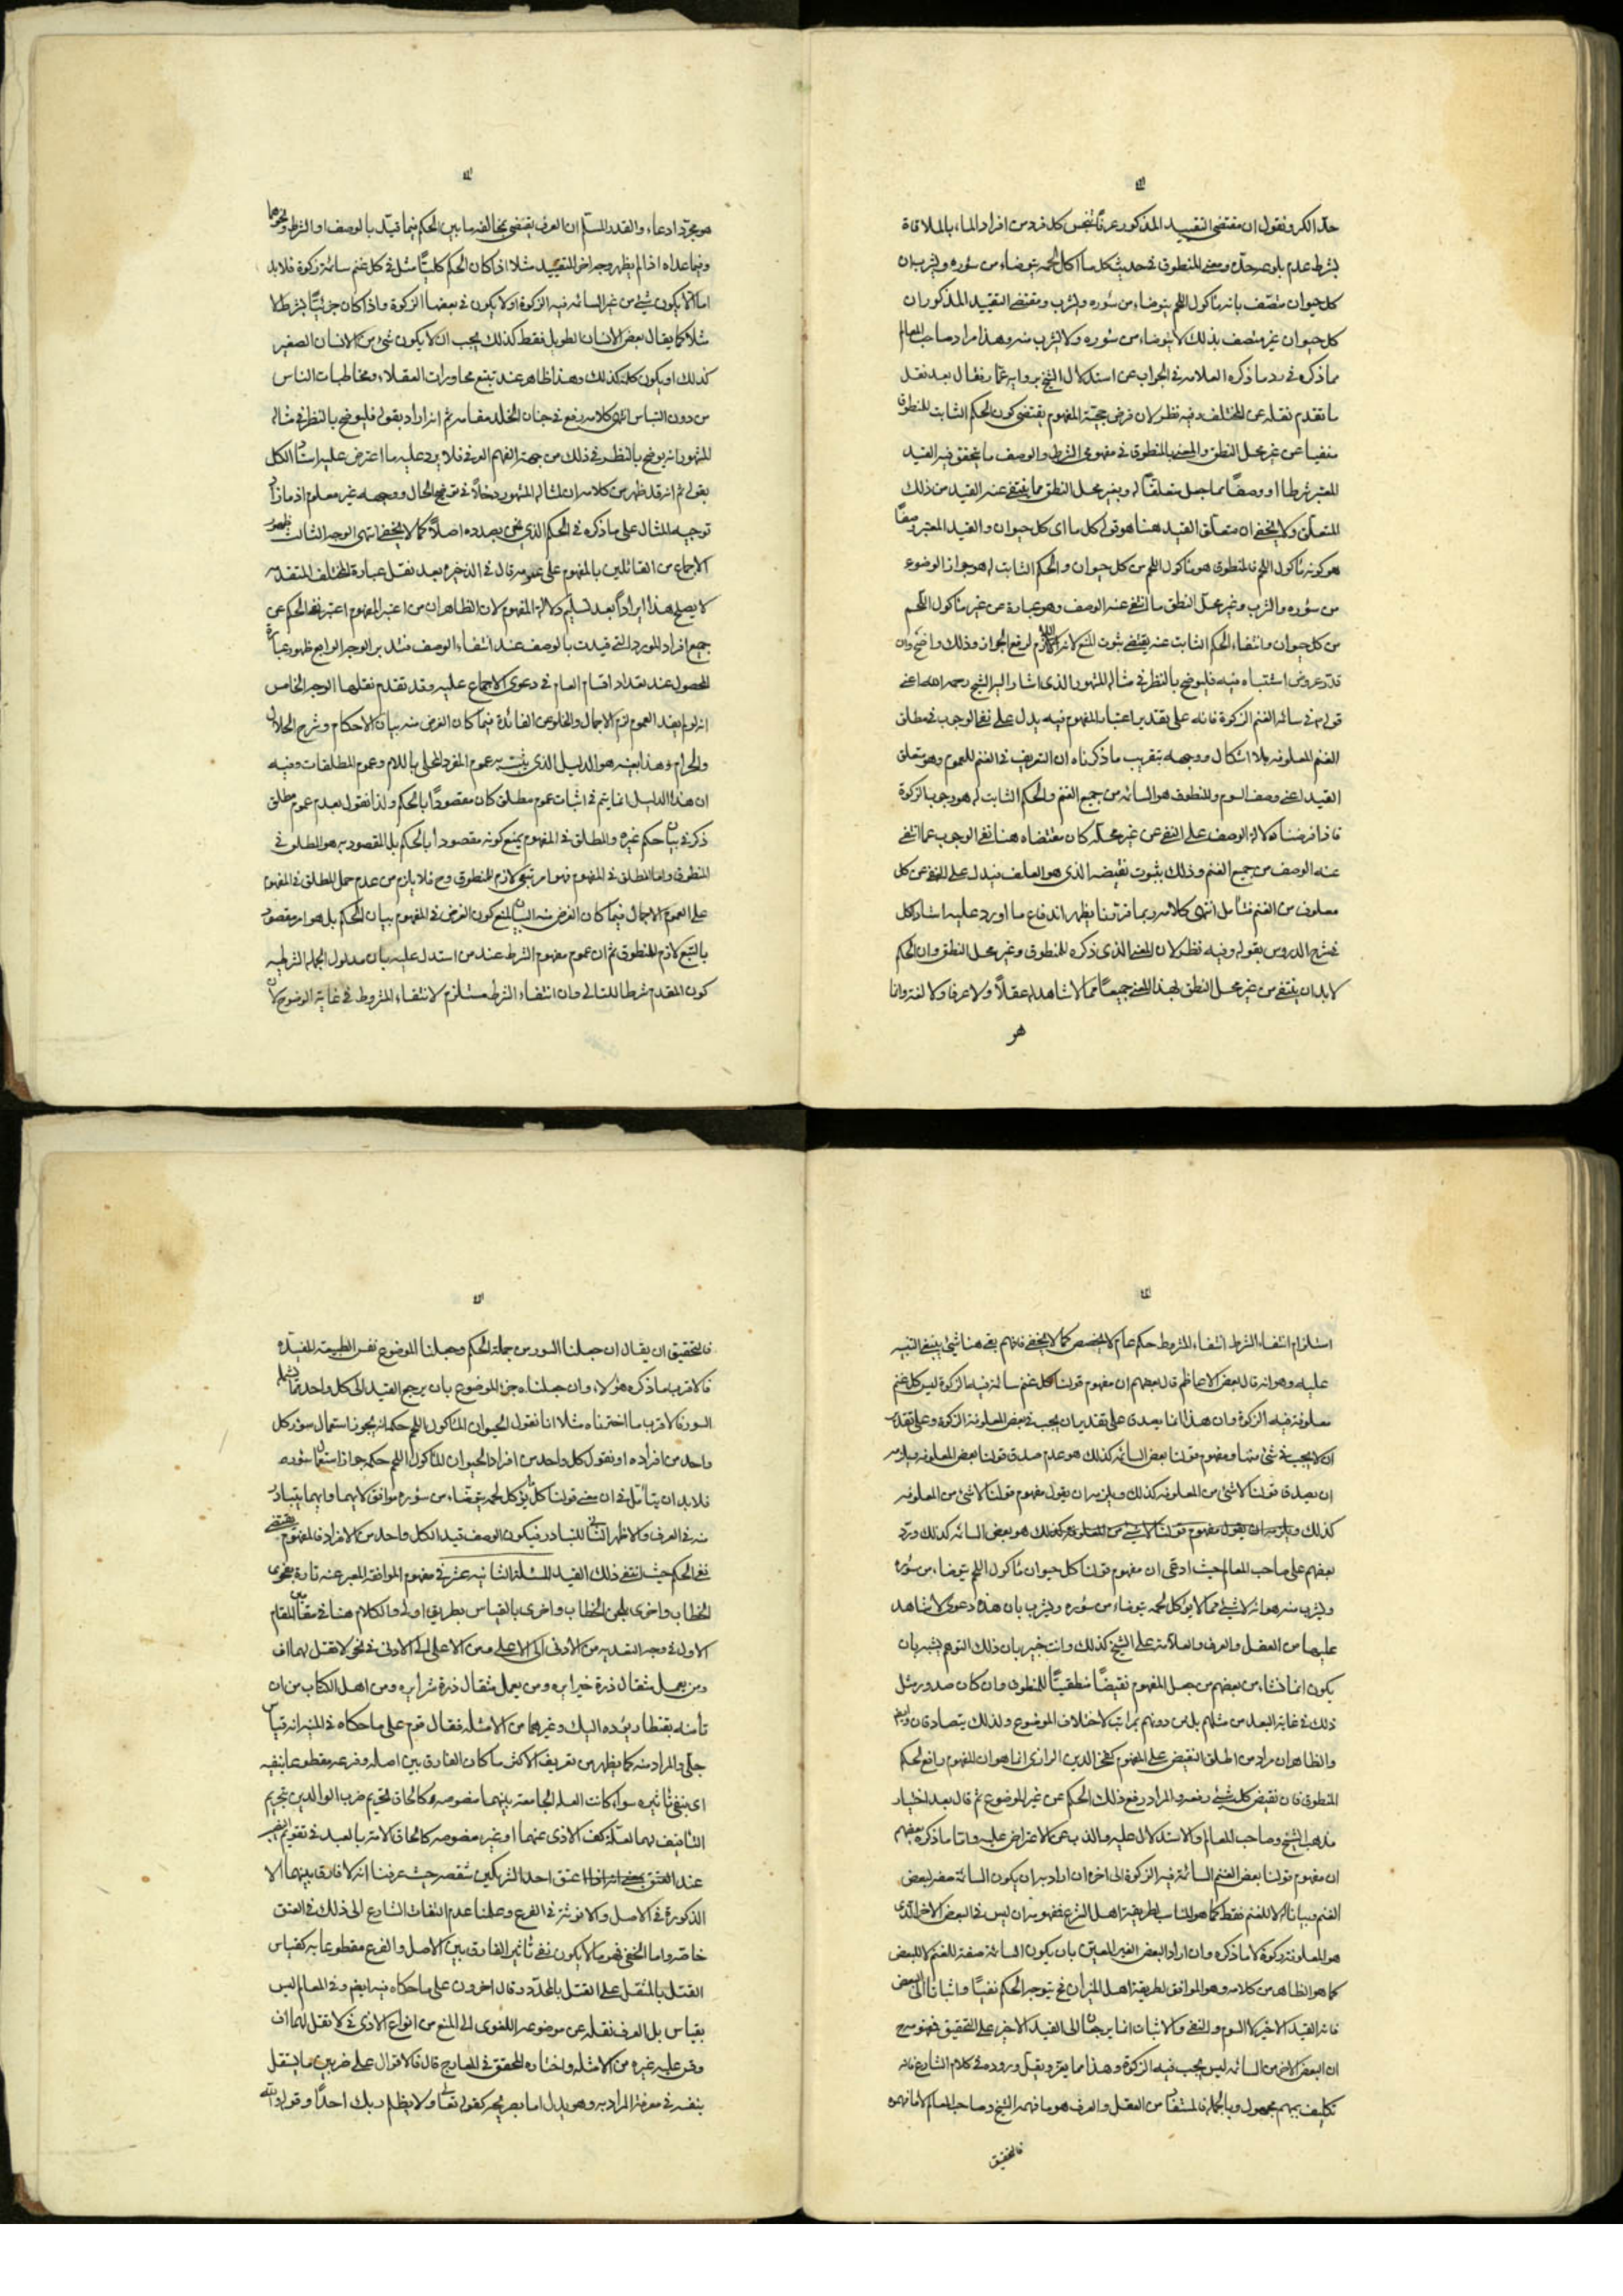 حد الكر ونقول ان مقتضى التقييد المذكور عرفا تنجس كل فرد من افراد الماء بالملاقاة
بشرط عدم بلوغه حده ومعنى المنطوق في حديث كل ما اكل لحمه يتوضاء من سؤره ويشرب ان
كل حيوان متصف بانه ماكول اللحم يتوضاء من سؤره ويشرب ومقتضى التقييد المذكور ان
كل حيوان غير متصف بذلك لا يتوضاء من سؤره ولا يشرب منه وهذا مراد صاحب المعالم
مما ذكره في رد ما ذكره العلامه في الجواب عن استدلال الشيخ برواية عمار فقال بعد نقل
ما تقدم نقله عن المختلف وفيه نظر لان فرض حجية المفهوم يقتضى كون الحكم الثابت للمنطوق
منفيا عن غير محل النطق والمعنى بالمنطوق في مفهومى الشرط والوصف ما تحقق فيه القيد
المعتبر شرطا او وصفا مما جعل متعلقا له وبغير محل النطق مما ينتفى عنه القيد من ذلك
المتعلق ولا يخفى ان متعلق القيد هنا هو قوله كل ما اى كل حيوان والقيد المعتبر وصفا
هو كونه ماكول اللحم فالمنطوق هو ماكول اللحم من كل حيوان والحكم الثابت له هو جواز الوضوء
من سؤره والشرب وغير محل النطق ما انتفى عنه الوصف وهو عبارة عن غير ماكول اللحم
من كل حيوان وانتفاء الحكم الثابت عنه يقتضى ثبوت المنع لانه اللازم لرفع الجواز وذلك واضح وان
قدر عروض اشتباه فيه فليوضح بالنظر في مثاله المشهور الذى اشار اليه الشيخ رحمه الله اعنى
قولهم في سائمة الغنم الزكوة فانه على تقدير اعتبار المفهوم فيه يدل على نفى الوجوب في مطلق
الغنم المعلوفه بلا اشكال ووجهه بتقريب ما ذكرناه ان التعريف في الغنم للعموم وهو متعلق
القيد اعنى وصف السوم والمنطوق هو السائمه من جميع الغنم والحكم الثابت له هو وجوب الزكوة
فاذا فرضنا دلالة الوصف على النفى عن غير محله كان مقتضاه هنا نفى الوجوب عما انتفى
عنه الوصف من جميع الغنم وذلك بثبوت نقيضه الذى هو العلف فيدل على النفى عن كل
معلوف من الغنم فتامل انتهى كلامه وبما قررنا يظهر اندفاع ما اورد عليه استاد الكل
في شرح الدروس بقوله وفيه نظر لان المعنى الذى ذكره للمنطوق وغير محل النطق وان الحكم
لابد ان ينتفى من غير محل النطق بهذا المعنى جميعا مما لا شاهد له عقلا ولا عرفا ولا لغة وانما
هو
هو مجرد ادعاء والقدر المسلم ان العرف يقتضى مخالفة ما بين الحكم فيما قيد بالوصف او الشرط ونحوهما
وفيما عداه اذا لم يظهر وجه اخر للتقييد مثلا اذا كان الحكم كليا مثل في كل غنم سائمة زكوة فلابد
اما الا يكون شئ من غير السائمه فيه الزكوة او لا يكون في بعضها الزكوة واذا كان جزئيا بشرط لا
مثلا كما يقال بعض الانسان الطويل فقط كذلك يجب ان لا يكون شئ من الانسان القصير
كذلك او يكون كله كذلك وهذا ظاهر عند تتبع محاورات العقلاء ومخاطبات الناس
من دون التباس انتهى كلامه رفع في جنان الخلد مقامه ثم انه اراد بقوله فليوضح بالنظر في مثاله
المشهور انه يوضح بالنظر في ذلك من جهة الفهم العرفى فلا يرد عليه ما اعترض عليه استاد الكل
بقوله ثم انه قد ظهر من كلامه ان لمثاله المشهور دخلا في توضيح الحال ووجهه غير معلوم اذ ما ذكره
توجيه المثال على ما ذكره في الحكم الذى نحن بصدده اصلا كما لا يخفى انتهى الوجه الثالث ظهور
الاجماع من القائلين بالمفهوم على عمومه قال في الذخيره بعد نقل عبارة المختلف المتقدمه
لا يصلح هذا ايرادا بعد تسليم دلالة المفهوم لان الظاهر ان من اعتبر المفهوم اعتبر نفى الحكم عن
جميع افراد المورد التى قيدت بالوصف عند انتفاء الوصف فتدبر الوجه الرابع ظهور عبارة
المحصول عند تعداد اقسام العام في دعوى الاجماع عليه وقد تقدم نقلها الوجه الخامس
انه لو لم يفد العموم لزم الاجمال والخلو عن الفائدة فيما كان الغرض منه بيان الاحكام وشرح الحلال
والحرام وهذا بعينه هو الدليل الذى يثبت به عموم المفرد المحلى باللام وعموم المطلقات وفيه
ان هذا الدليل انما يتم في اثبات عموم مطلق كان مقصودا بالحكم ولذا نقول بعدم عموم مطلق
ذكر في بيان حكم غيره والمطلق في المفهوم يمنع كونه مقصودا بالحكم بل المقصود به هو المطلق في
المنطوق واما المطلق في المفهوم فهو امر تبعى لازم للمنطوق وح فلا يلزم من عدم حمل المطلق في المفهوم
على العموم الاجمال فيما كان الغرض منه البيان لمنع كون الغرض في المفهوم بيان الحكم بل هو امر مقصود
بالتبع لازم للمنطوق ثم ان عموم مفهوم الشرط عند من استدل عليه بان مدلول الجمله الشرطيه
كون المقدم شرطا للتالى وان انتفاء الشرط مستلزم لانتفاء المشروط في غاية الوضوح لان
استلزام انتفاء الشرط انتفاء المشروط حكم عام لا يخصص كما لا يخفى فافهم بقى هنا شئ ينبغى التنبيه
عليه وهو انه قال بعض الاعاظم قال بعضهم ان مفهوم قولنا كل غنم سائمة فيه الزكوة ليس كل غنم
معلوفة فيه الزكوة وان هذا انما يصدق على تقدير ان يجب في بعض المعلوفة الزكوة وعلى تقدير
ان لا يجب في شئ منها ومفهوم قولنا بعض السائمه كذلك هو عدم صدق قولنا بعض المعلوفه ويلزمه
ان يصدق قولنا لا شئ من المعلوفه كذلك ويلزمه ان يقول مفهوم قولنا لا شئ من المعلوفه
كذلك ويلزمه ان يقول مفهوم قولنا لا شئ من المعلوفه كذلك هو بعض السائمه كذلك ورد
بعضهم على صاحب المعالم حيث ادعى ان مفهوم قولنا كل حيوان ماكول اللحم يتوضاء من سؤره
ويشرب منه هو انه لا شئ مما لا يؤكل لحمه يتوضاء من سؤره ويشرب بان هذه دعوى لا شاهد
عليها من العقل والعرف والعلامه على الشيخ كذلك وانت خبير بان ذلك التوهم يشبه بان
يكون انما نشاء من بعضهم من جعل المفهوم نقيضا منطقيا للمنطوق وان كان صدور مثل
ذلك في غاية البعد من مثلهم بل من دونهم بمراتب لاختلاف الموضوع ولذلك يتصادقان
والظاهر ان مراد من اطلق النقيض على المفهوم كفخر الدين الرازى انما هو ان المفهوم رافع لحكم
المنطوق فان نقيض كل شئ رفعه والمراد رفع ذلك الحكم عن غير الموضوع ثم قال بعد اختيار
مذهب الشيخ وصاحب المعالم والاستدلال عليه والذب عن الاعتراض عليه واما ما ذكره بعضهم
ان مفهوم قولنا بعض الغنم السائمة فيه الزكوة الى اخره ان اراد به ان يكون السائمة صفة لبعض
الغنم وبيانا له لا للغنم فقط كما هو المناسب لطريقة اهل الشرع فمفهومه ان ليس في البعض الاخر الذى
هو المعلوفة زكوة لا ما ذكره وان اراد البعض الغير المعين بان يكون السائمة صفة للغنم لا للبعض
كما هو الظاهر من كلامه وهو الموافق لطريقة اهل الميزان فح يتوجه الحكم نفيا واثباتا الى البعض
فانه القيد الاخير لا السوم والنفى والاثبات انما يرجعان الى القيد الاخير على التحقيق فمفهومه ح
ان البعض الاخر من السائمه ليس يجب فيه الزكوة وهذا مما يعز ويقل وروده في كلام الشارع فانه
تكليف بمبهم مجهول وبالجملة فالمستفاد من العقل والعرف هو ما فهمه الشيخ وصاحب المعالم لا ما فهموه
فالتحقيق
فالتحقيق ان يقال ان جعلنا السور من جملة الحكم وجعلنا الموضوع نفس الطبيعة المقيدة
فالاقرب ما ذكره هؤلاء وان جعلناه جزء الموضوع بان يرجع القيد الى كل واحد مما يشمله
السور فالاقرب ما اخترناه مثلا انا نقول الحيوان الماكول اللحم حكمه انه يجوز استعمال سؤر كل
واحد من افراده او نقول كل واحد من افراد الحيوان الماكول اللحم حكمه جواز استعمال سؤره
فلابد ان يتامل في ان معنى قولنا كل ما يؤكل لحمه يتوضاء من سؤره موافق لايهما وايهما يتبادر
منه في العرف والاظهر الثانى للتبادر فيكون الوصف قيدا لكل واحد من الافراد فالمفهوم يقتضى
نفى الحكم حيث انتفى ذلك القيد المسئلة الثانيه عشر في مفهوم الموافقة المعبر عنه تارة بفحوى
الخطاب واخرى بلحن الخطاب واخرى بالقياس بطريق اولى والكلام هنا في مقامين المقام
الاول في وجه التعديه من الادنى الى الاعلى ومن الاعلى الى الادنى في نحو لا تقل لهما اف
ومن يعمل مثقال ذرة خيرا يره ومن يعمل مثقال ذرة شرا يره ومن اهل الكتاب من ان
تامنه بقنطار يؤده اليك وغيرهما من الامثله فقال قوم على ما حكاه في المنيه انه قياس
جلى والمراد منه كما يظهر من تعريف الاكثر ما كان الفارق بين اصله وفرعه مقطوعا بنفيه
اى بنفى تاثيره سواء كانت العلة الجامعه بينهما منصوصه كالحاق تحريم ضرب الوالدين بتحريم
التافيف لهما لعلة كف الاذى عنهما او غير منصوصه كالحاق الامة بالعبد في تقويم النصيب
عند العتق عتق احد الشريكين شقصه حيث عرفنا انه لا فارق بينهما الا
الذكورة في الاصل والانوثة في الفرع وعلمنا عدم التفات الشارع الى ذلك في العتق
خاصة واما الخفى فهو ما لا يكون نفى تاثير الفارق بين الاصل والفرع مقطوعا به كقياس
القتل بالمثقل على القتل بالمحدد وقال اخرون على ما حكاه فيه ايضا وفي المعالم ليس
بقياس بل العرف نقله عن موضوعه اللغوى الى المنع من انواع الاذى في لا تقل لهما اف
وقس عليه غيره من الامثله واختاره المحقق في المعارج قال فالاقوال على ضربين ما يستقل
بنفسه في معرفة المراد به وهو يدل اما بصريحه كقوله تعالى ولا يظلم ربك احدا وقوله والله